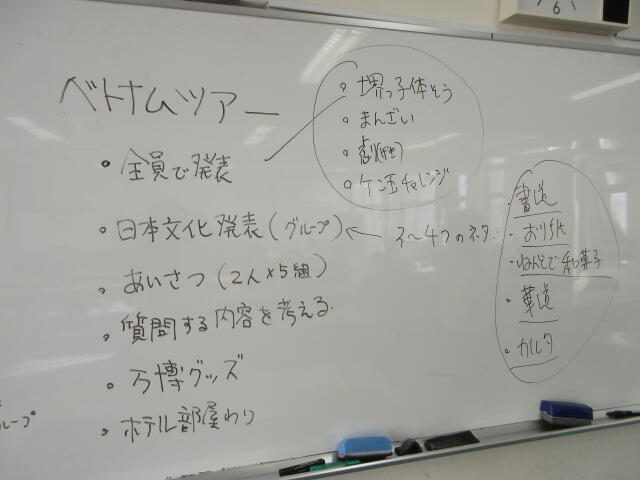 ベトナムツアー
・全員で発表
・日本文化発表(グループ)
・あいさつ(2人×5組)
・質問する内容を考える
・万博グッズ
・ホテル部屋わり
。堺っ子体そう
。まんざい
。劇
。ケン玉チャレンジ
3〜4つのネタ
・書道
・おり紙
・ねんどで和菓子
・華道
・カルタ
ループ
6